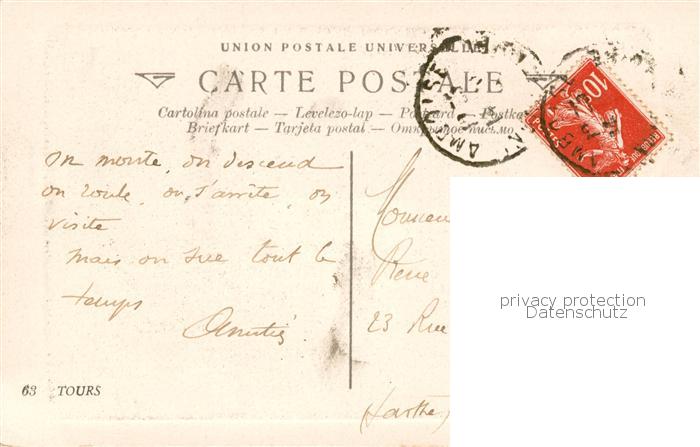 UNION POSTALE UNIVERSELLE
CARTE POSTALE
Cartolina postale — Levelezo-lap — Postcard — Postka
Briefkart — Tarjeta postal — Открытое письмо
On monte, on descend
on roule, on s'arrête, on
visite
mais on sue tout le
temps
Amitiés
63 TOURS
Monsieu
René
23 Rue
(Sarthe)
AMBOISE
10
privacy protection
Datenschutz